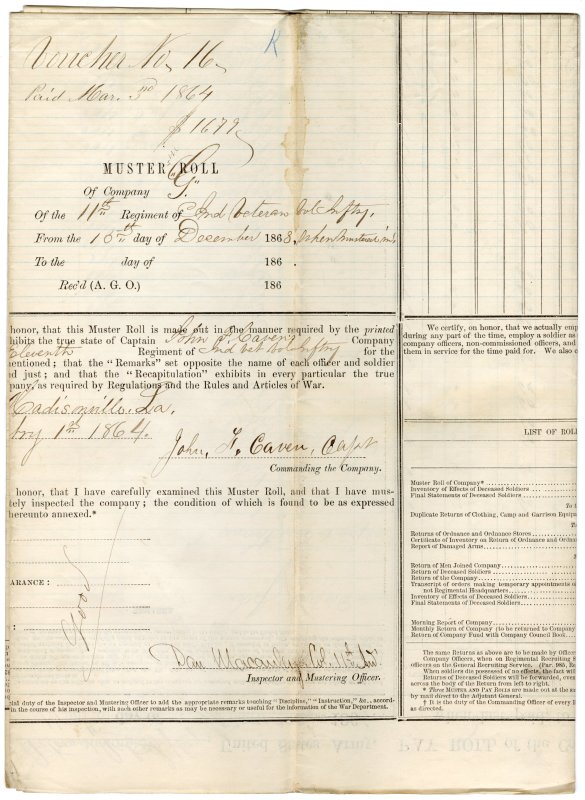 Voucher No. 16.
K
Paid Mar. 3rd 1864
$1679
MUSTER ROLL
Of Company "G".
Of the 11th Regiment of Ind Veteran Vol Inftry.
From the 15th day of December 1863, when mustered in
To the day of 186 .
Rec'd (A. G. O.) 186
honor, that this Muster Roll is made out in the manner required by the printed
hibits the true state of Captain John F. Caven's Company
Eleventh Regiment of Ind Vet Vol Inftry for the
entioned; that the "Remarks" set opposite the name of each officer and soldier
nd just; and that the "Recapitulation" exhibits in every particular the true
pany, as required by Regulations and the Rules and Articles of War.
Madisonville La.
ry 1st 1864.
John, F. Caven, Capt
Commanding the Company.
honor, that I have carefully examined this Muster Roll, and that I have mus-
tely inspected the company; the condition of which is found to be as expressed
hereunto annexed.*
ARANCE:
good
:
Dan Macauley Col. 11th Ind.
Inspector and Mustering Officer.
cial duty of the Inspector and Mustering Officer to add the appropriate remarks touching "Discipline," "Instruction," &c., accord-
in the course of his inspection, with such other remarks as may be necessary or useful for the information of the War Department.
We certify, on honor, that we actually emp
during any part of the time, employ a soldier as
company officers, non-commissioned officers, and
them in service for the time paid for. We also c
LIST OF ROLL
Muster Roll of Company*
Inventory of Effects of Deceased Soldiers
Final Statements of Deceased Soldiers
To t
Duplicate Returns of Clothing, Camp and Garrison Equipa
T
Returns of Ordnance and Ordnance Stores
Certificate of Inventory on Return of Ordnance and Ordna
Report of Damaged Arms
Return of Men Joined Company
Return of Deceased Soldiers
Return of the Company
Transcript of orders making temporary appointments o
not Regimental Headquarters
Inventory of Effects of Deceased Soldiers
Final Statements of Deceased Soldiers
Morning Report of Company
Monthly Return of Company (to be returned to Company
Return of Company Fund with Company Council Book
The same Returns as above are to be made by Officer
Company Officers, when on Regimental Recruiting S
officers on the General Recruiting Service. (Par. 985, R
When soldiers die possessed of no effects, the fact wil
Returns of Deceased Soldiers will be forwarded, even
across the body of the Return from left to right.
* Three MUSTER AND PAY ROLLS are made out at the sa
by mail direct to the Adjutant General.
† It is the duty of the Commanding Officer of every
as directed.